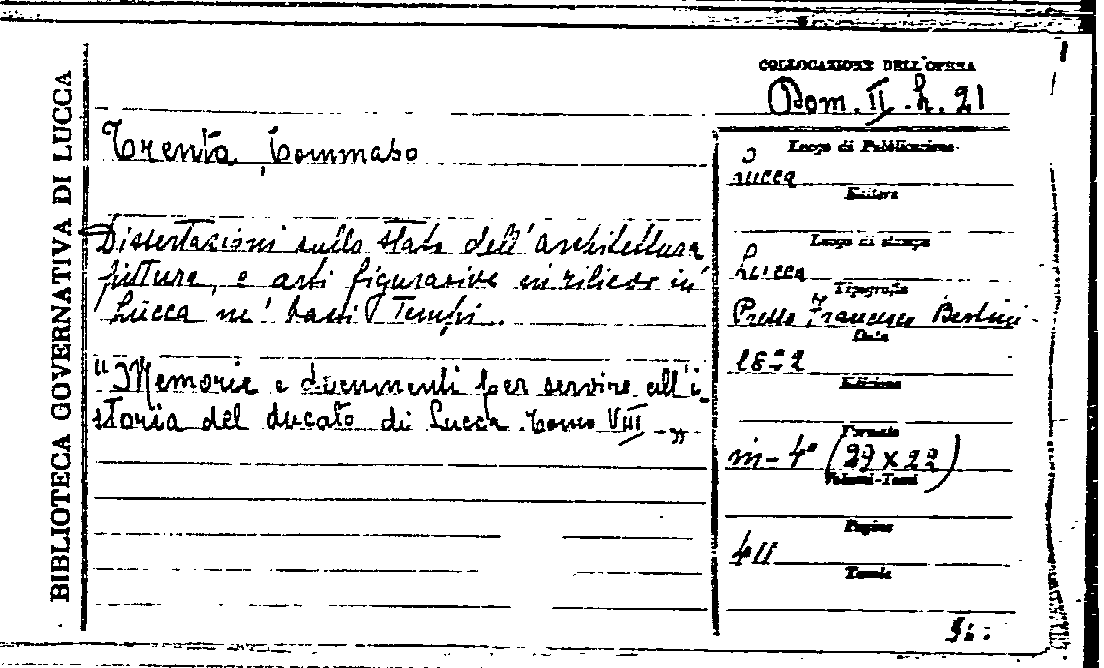 BIBLIOTECA GOVERNATIVA DI LUCCA
COLLOCAZIONE DELL'OPERA
Dom. II. h. 21
Trenta, Tommaso
Dissertazioni sullo stato dell'architettura
pittura, e arti figurative in rilievo in
Lucca ne' bassi Tempi.
"Memorie e documenti per servire all'i
storia del ducato di Lucca. Tomo VIII -"
Luogo di Pubblicazione
Lucca
Editore
Luogo di stampa
Lucca
Tipografia
Presso Francesco Bertini
Data
1822
Edizione
Formato
in-4° (29 x 22)
Volumi-Tomi
Pagine
411
Tavole